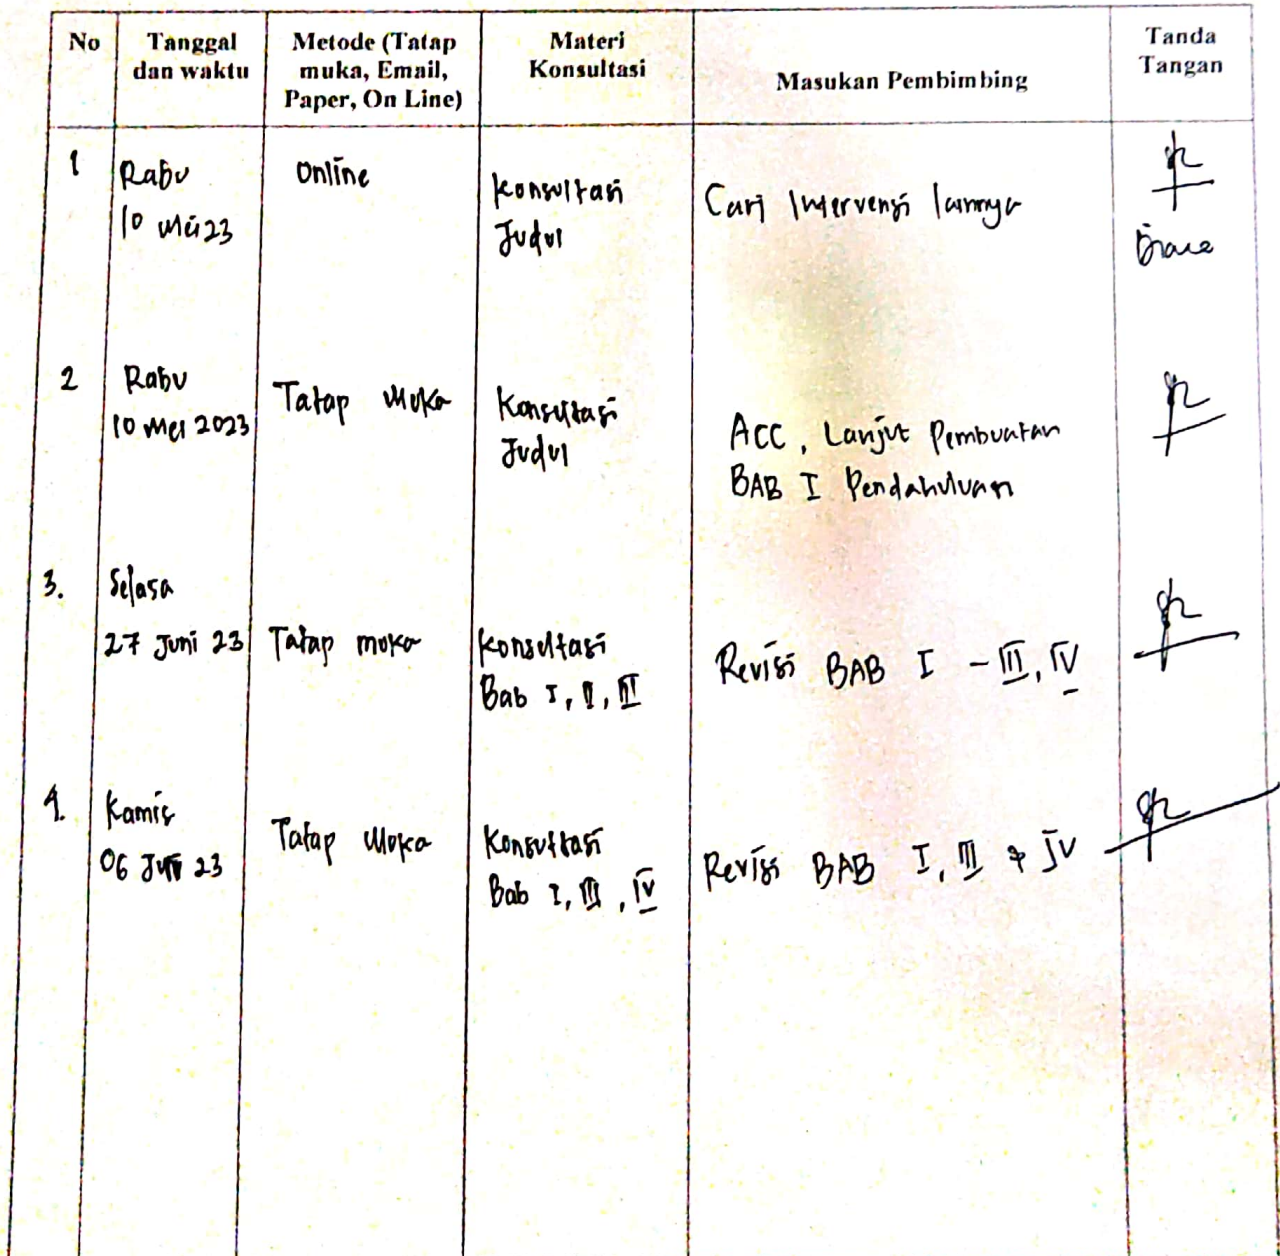 No
Tanggal
dan waktu
Metode (Tatap
muka, Email,
Paper, On Line)
Materi
Konsultasi
Masukan Pembimbing
Tanda
Tangan
1
Rabu
10 Mei 23
Online
Konsultasi
Judul
Cari Intervensi lainnya
2
Rabu
10 Mei 2023
Tatap Muka
Konsultasi
Judul
ACC, Lanjut Pembuatan
BAB I Pendahuluan
3.
Selasa
27 Juni 23
Tatap muka
Konsultasi
Bab I, II, III
Revisi BAB I - III, IV
4.
Kamis
06 23
Tatap Muka
Konsultasi
Bab I, III, IV
Revisi BAB I, III & IV